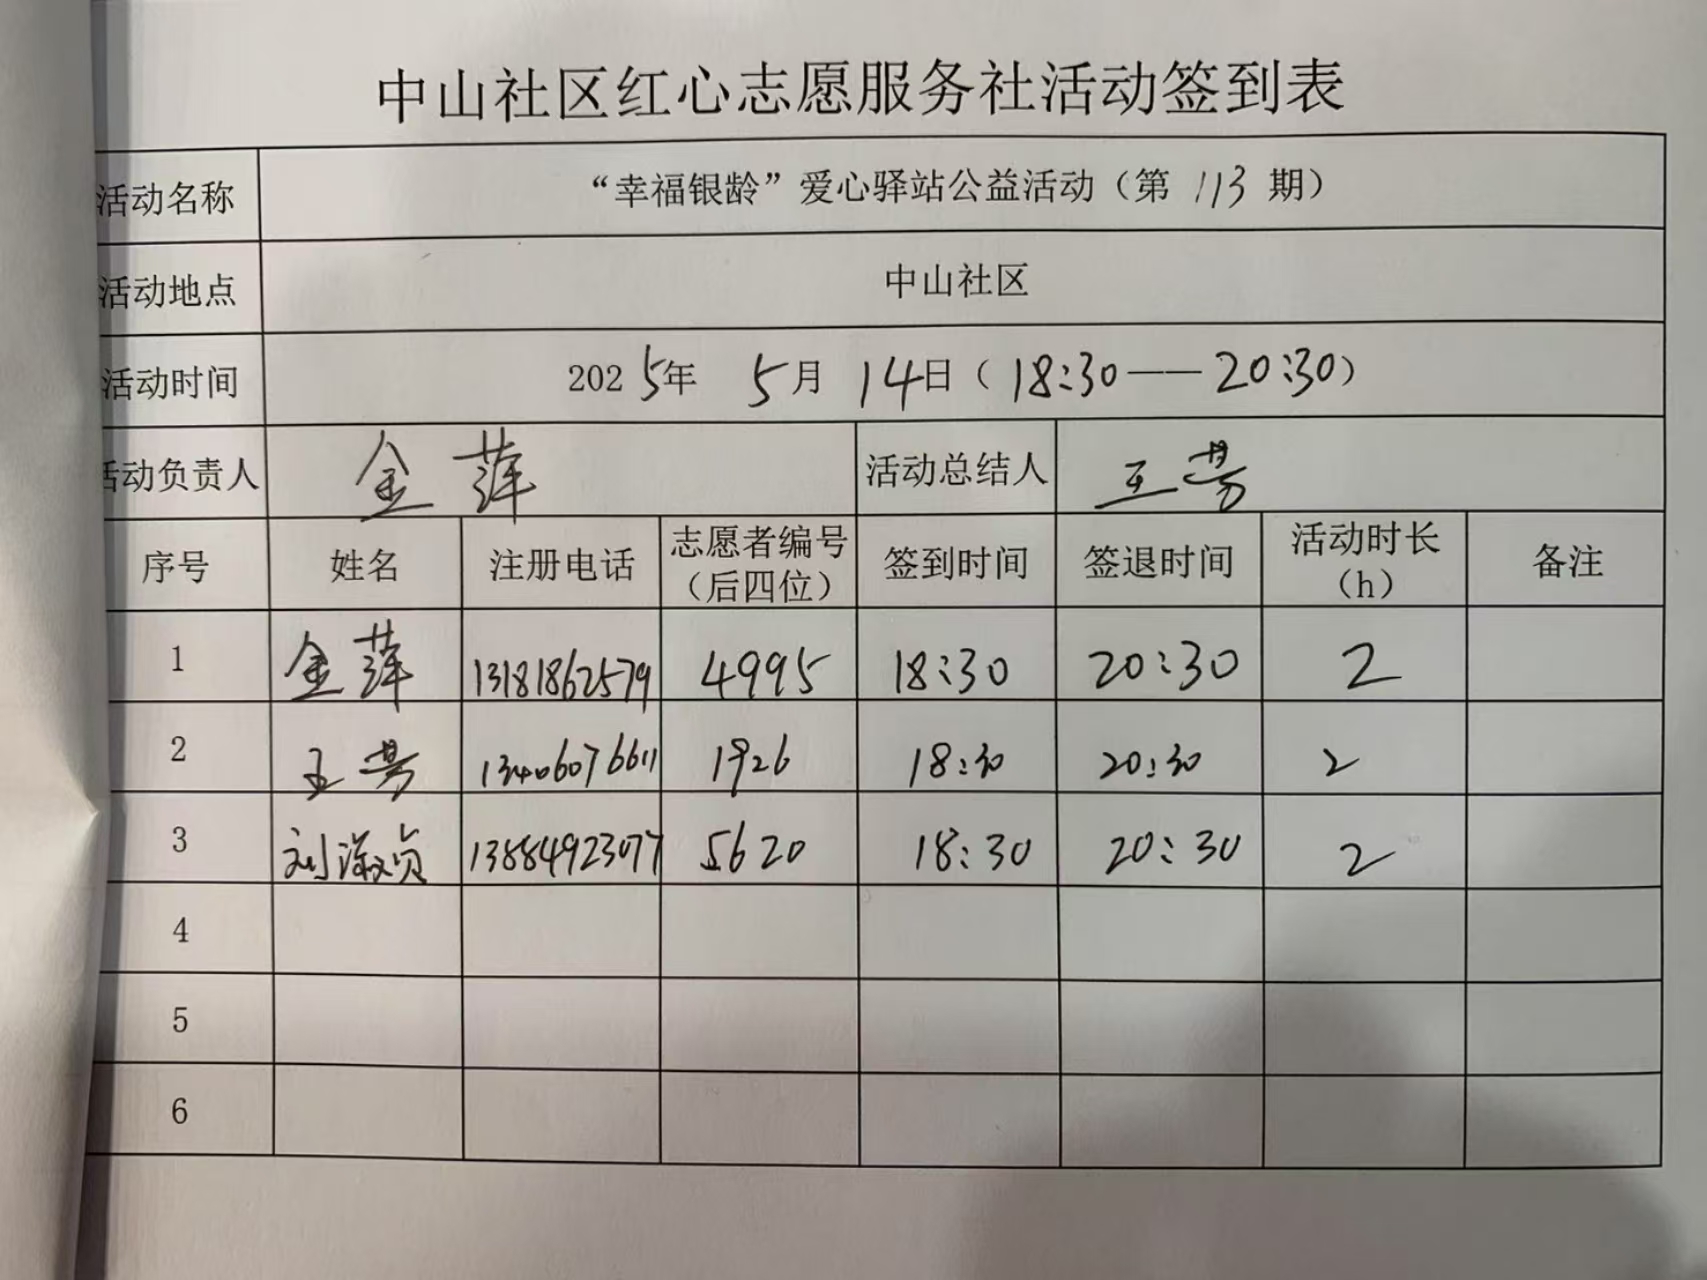 中山社区红心志愿服务社活动签到表
活动名称 “幸福银龄”爱心驿站公益活动（第 113 期）
活动地点 中山社区
活动时间 2025年 5月 14日（18:30——20:30）
活动负责人 金萍 活动总结人 王芳
序号 姓名 注册电话 志愿者编号（后四位） 签到时间 签退时间 活动时长（h） 备注
1 金萍 13181862579 4995 18:30 20:30 2
2 王芳 13406076611 1926 18:30 20:30 2
3 刘淑贞 13884923077 5620 18:30 20:30 2
4
5
6